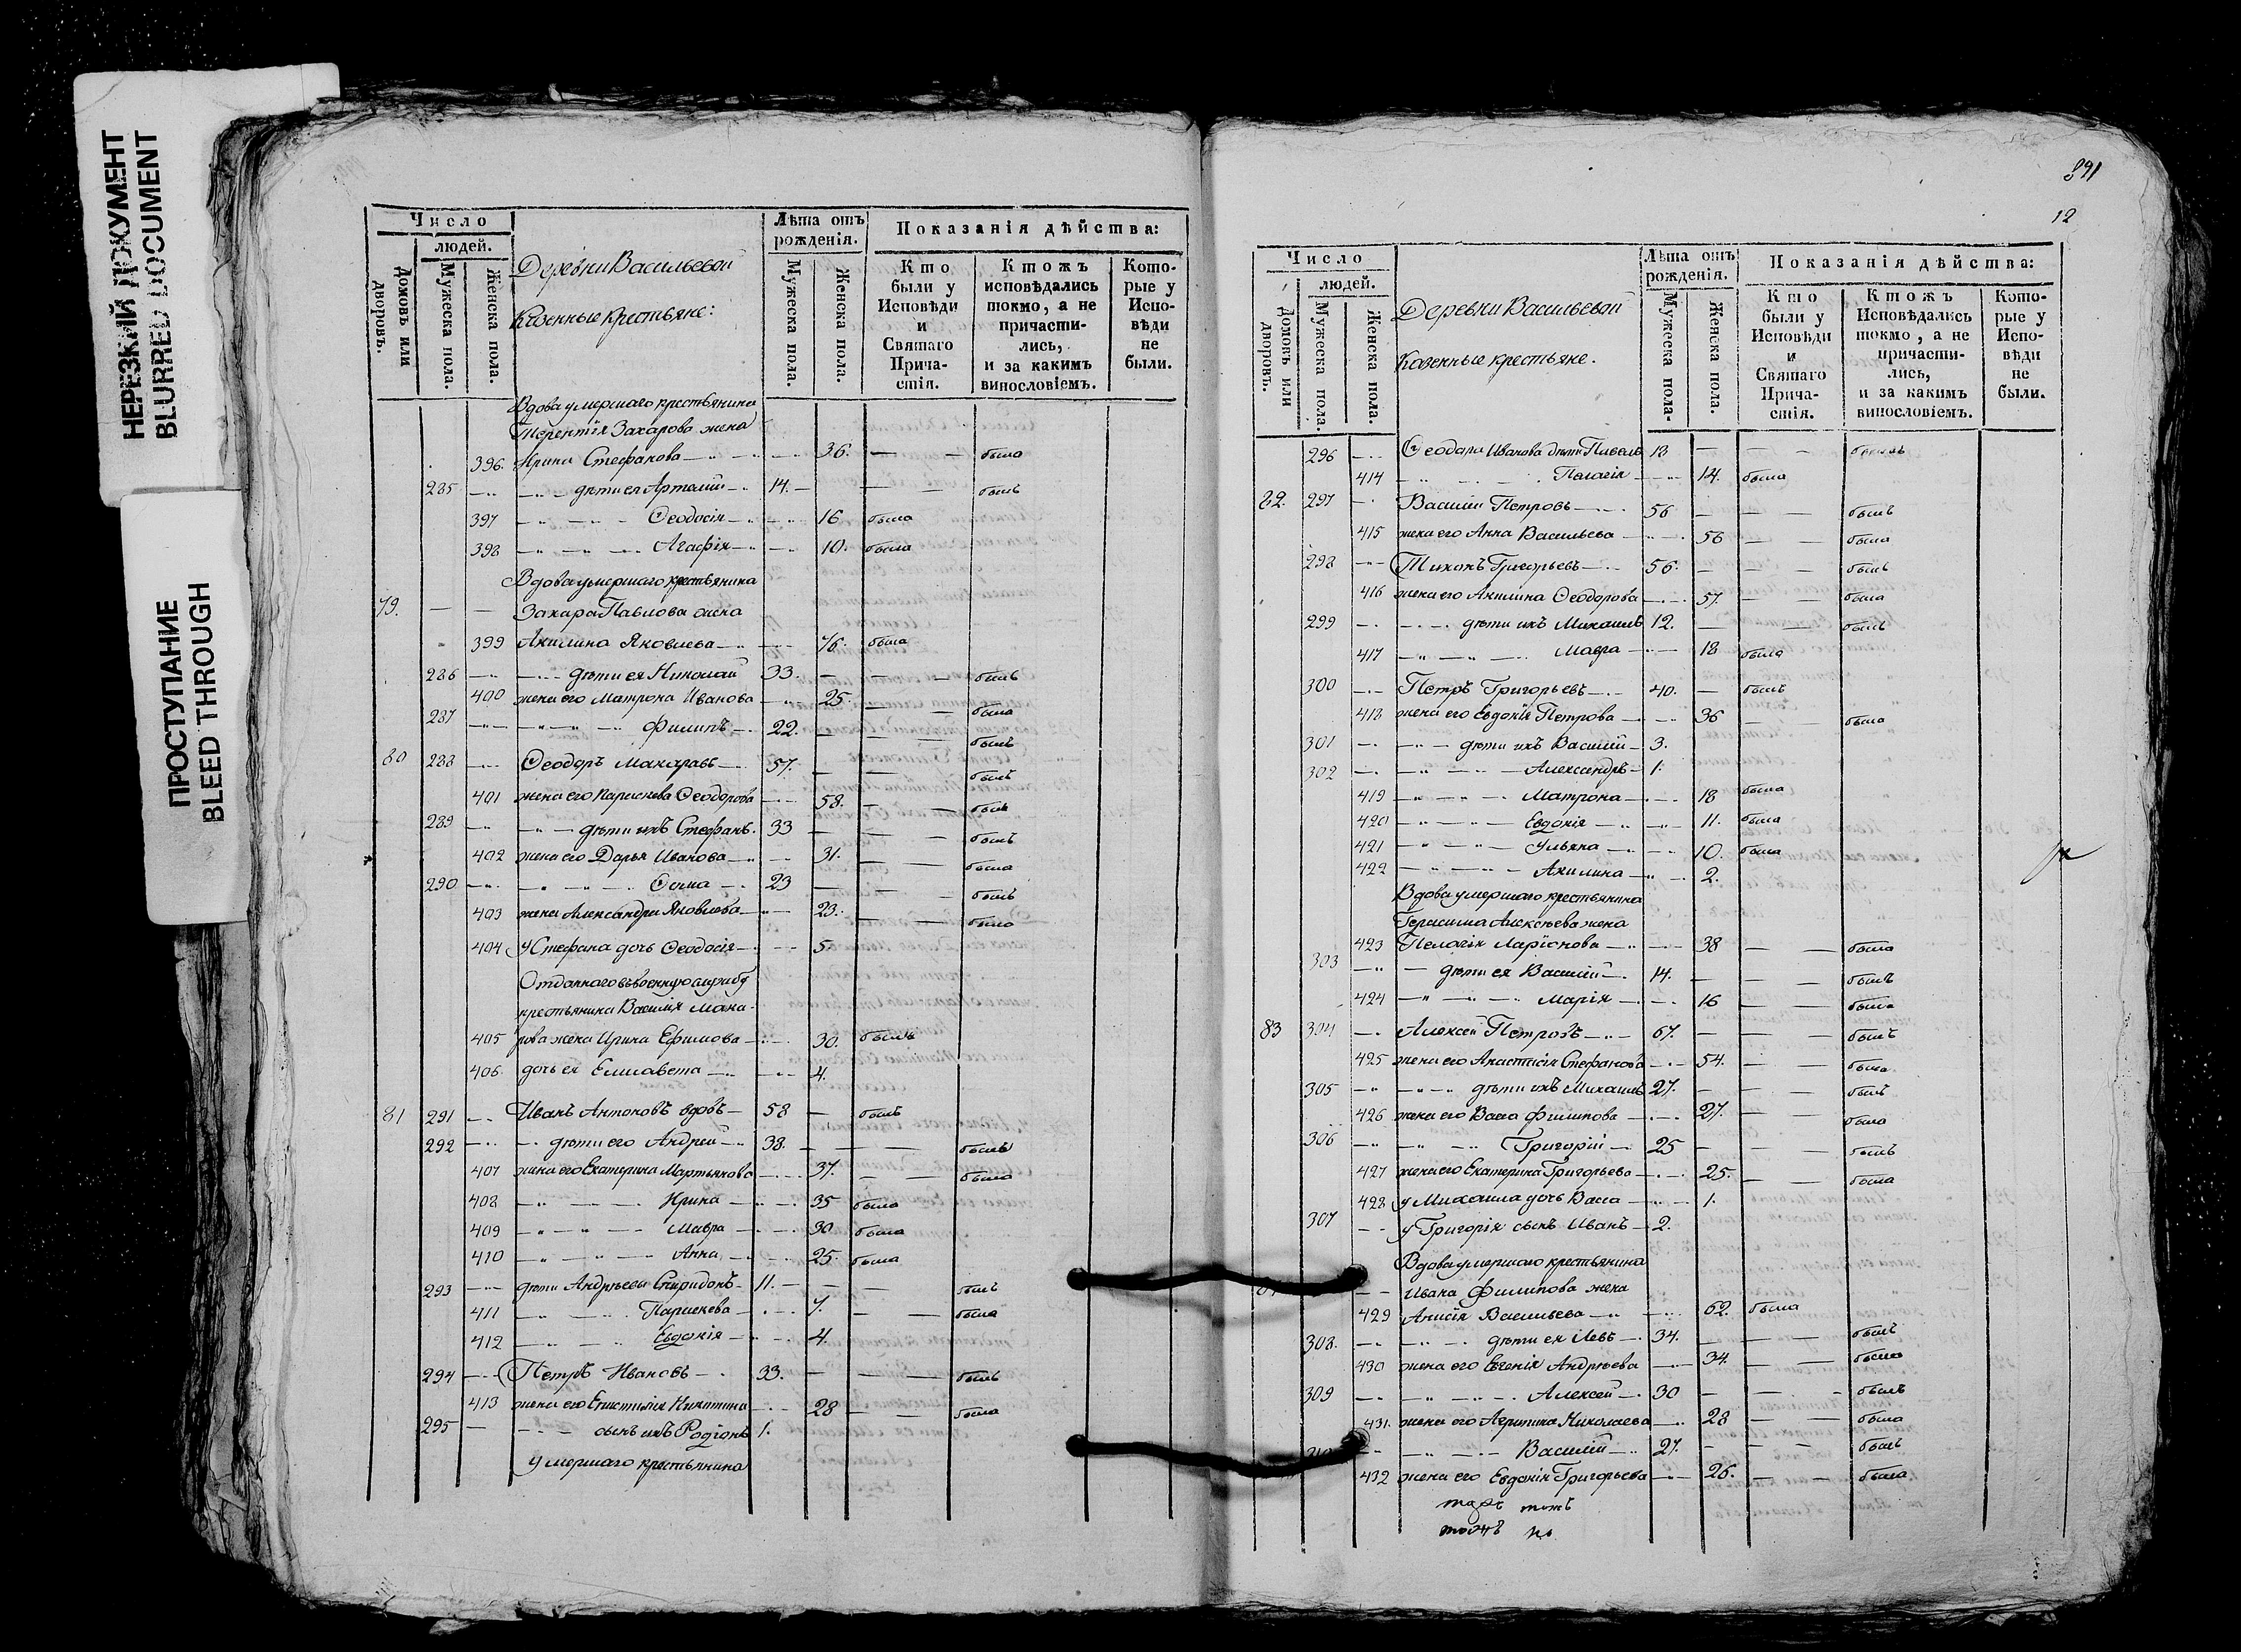 НЕРЕЗКИЙ ДОКУМЕНТ
BLURRED DOCUMENT
ПРОСТУПАНИЕ
BLEED THROUGH
Число
людей.
Домовъ или дворовъ.
Мужеска пола.
Женска пола.
Деревни Васильевой
Казенные крестьяне:
Лѣта отъ рожденія.
Мужеска пола.
Женска пола.
Показанія дѣйства:
Кто были у Исповѣди и Святаго Причастія.
Ктожъ исповѣдались токмо, а не причастились, и за какимъ винословіемъ.
Которые у Исповѣди не были.
Вдова умершаго крестьянина
Терентія Захарова жена
396. Ирина Стефанова 36. была
285 дѣти ея Артемій 14. былъ
397 Ѳеодосія 16 была
398 Агафія 10. была
Вдова умершаго крестьянина
79. Захара Павлова жена
399 Акилина Яковлева 76. была
286 дѣти ея Николай 33. былъ
400 жена его Матрона Иванова 25. была
287 Филипъ 22. былъ
80 288 Ѳеодоръ Макаровъ 57. былъ
401 жена его Параскева Ѳеодорова 58. была
289 дѣти ихъ Стефанъ. 33 былъ
402 жена его Дарья Иванова 31. была
290 Ѳома 23 былъ
403 жена Александра Яковлева 23. была
404 У Стефана дочь Ѳеодосія 5.
Отданнаго въ военную службу
крестьянина Василія Мака-
405 рова жена Ирина Ефимова 30. была
406. дочь ея Елисавета 4.
81 291 Иванъ Антоновъ вдовъ 58 былъ
292 дѣти его Андрей 38. былъ
407 жена его Екатерина Мартьянова 37. была
408 Ирина 35 была
409 Мавра 30. была
410 Анна 25. была
293 дѣти Андрѣевы Спиридонъ 11. былъ
411 Параскева 7. была
412 Евдокія 4.
294 Петръ Ивановъ 33. былъ
413 жена его Епистимія Никитина 28 была
295 сынъ ихъ Родіонъ 1.
Умершаго крестьянина
891
12
Число
людей.
Домовъ или дворовъ.
Мужеска пола.
Женска пола.
Деревни Васильевой
Казенные крестьяне.
Лѣта отъ рожденія.
Мужеска пола.
Женска пола.
Показанія дѣйства:
Кто были у Исповѣди и Святаго Причастія.
Ктожъ Исповѣдались токмо, а не причастились, и за какимъ винословіемъ.
Которые у Исповѣди не были.
296 Ѳеодора Иванова дѣти Павелъ 18 былъ
414 Пелагія 14. была
82. 297 Василій Петровъ 56 былъ
415 жена его Анна Васильева 56 была
298 Тихонъ Григорьевъ 56. былъ
416 жена его Акилина Ѳеодорова 57. была
299 дѣти ихъ Михаилъ 12. былъ
417 Мавра 18 была
300 Петръ Григорьевъ 40. былъ
418 жена его Евдокія Петрова 36 была
301 дѣти ихъ Василій 3.
302 Александръ 1.
419 Матрона 18 была
420 Евдокія 11. была
421 Ульяна 10. была
422 Акилина 2.
Вдова умершаго крестьянина
Герасима Алексѣева жена
423 Пелагія Ларіонова 38 была
303 дѣти ея Василій 14. былъ
424 Марія 16 была
83 304 Алексѣй Петровъ 67. былъ
425 жена его Анастасія Стефанова 54. была
305 дѣти ихъ Михаилъ 27. былъ
426 жена его Васса Филипова 27. была
306 Григорій 25 былъ
427 жена его Екатерина Григорьева 25. была
428 у Михаила дочь Васса 1.
307 у Григорія сынъ Иванъ 2.
Вдова умершаго крестьянина
Ивана Филипова жена
429 Анисія Васильева 62. была
308. дѣти ея Левъ 34. былъ
430 жена его Евгенія Андрѣева 34. была
309 Алексѣй 30 былъ
431. жена его Агрипина Николаева 28 была
Василій 27. былъ
432 жена его Евдокія Григорьева 26. была